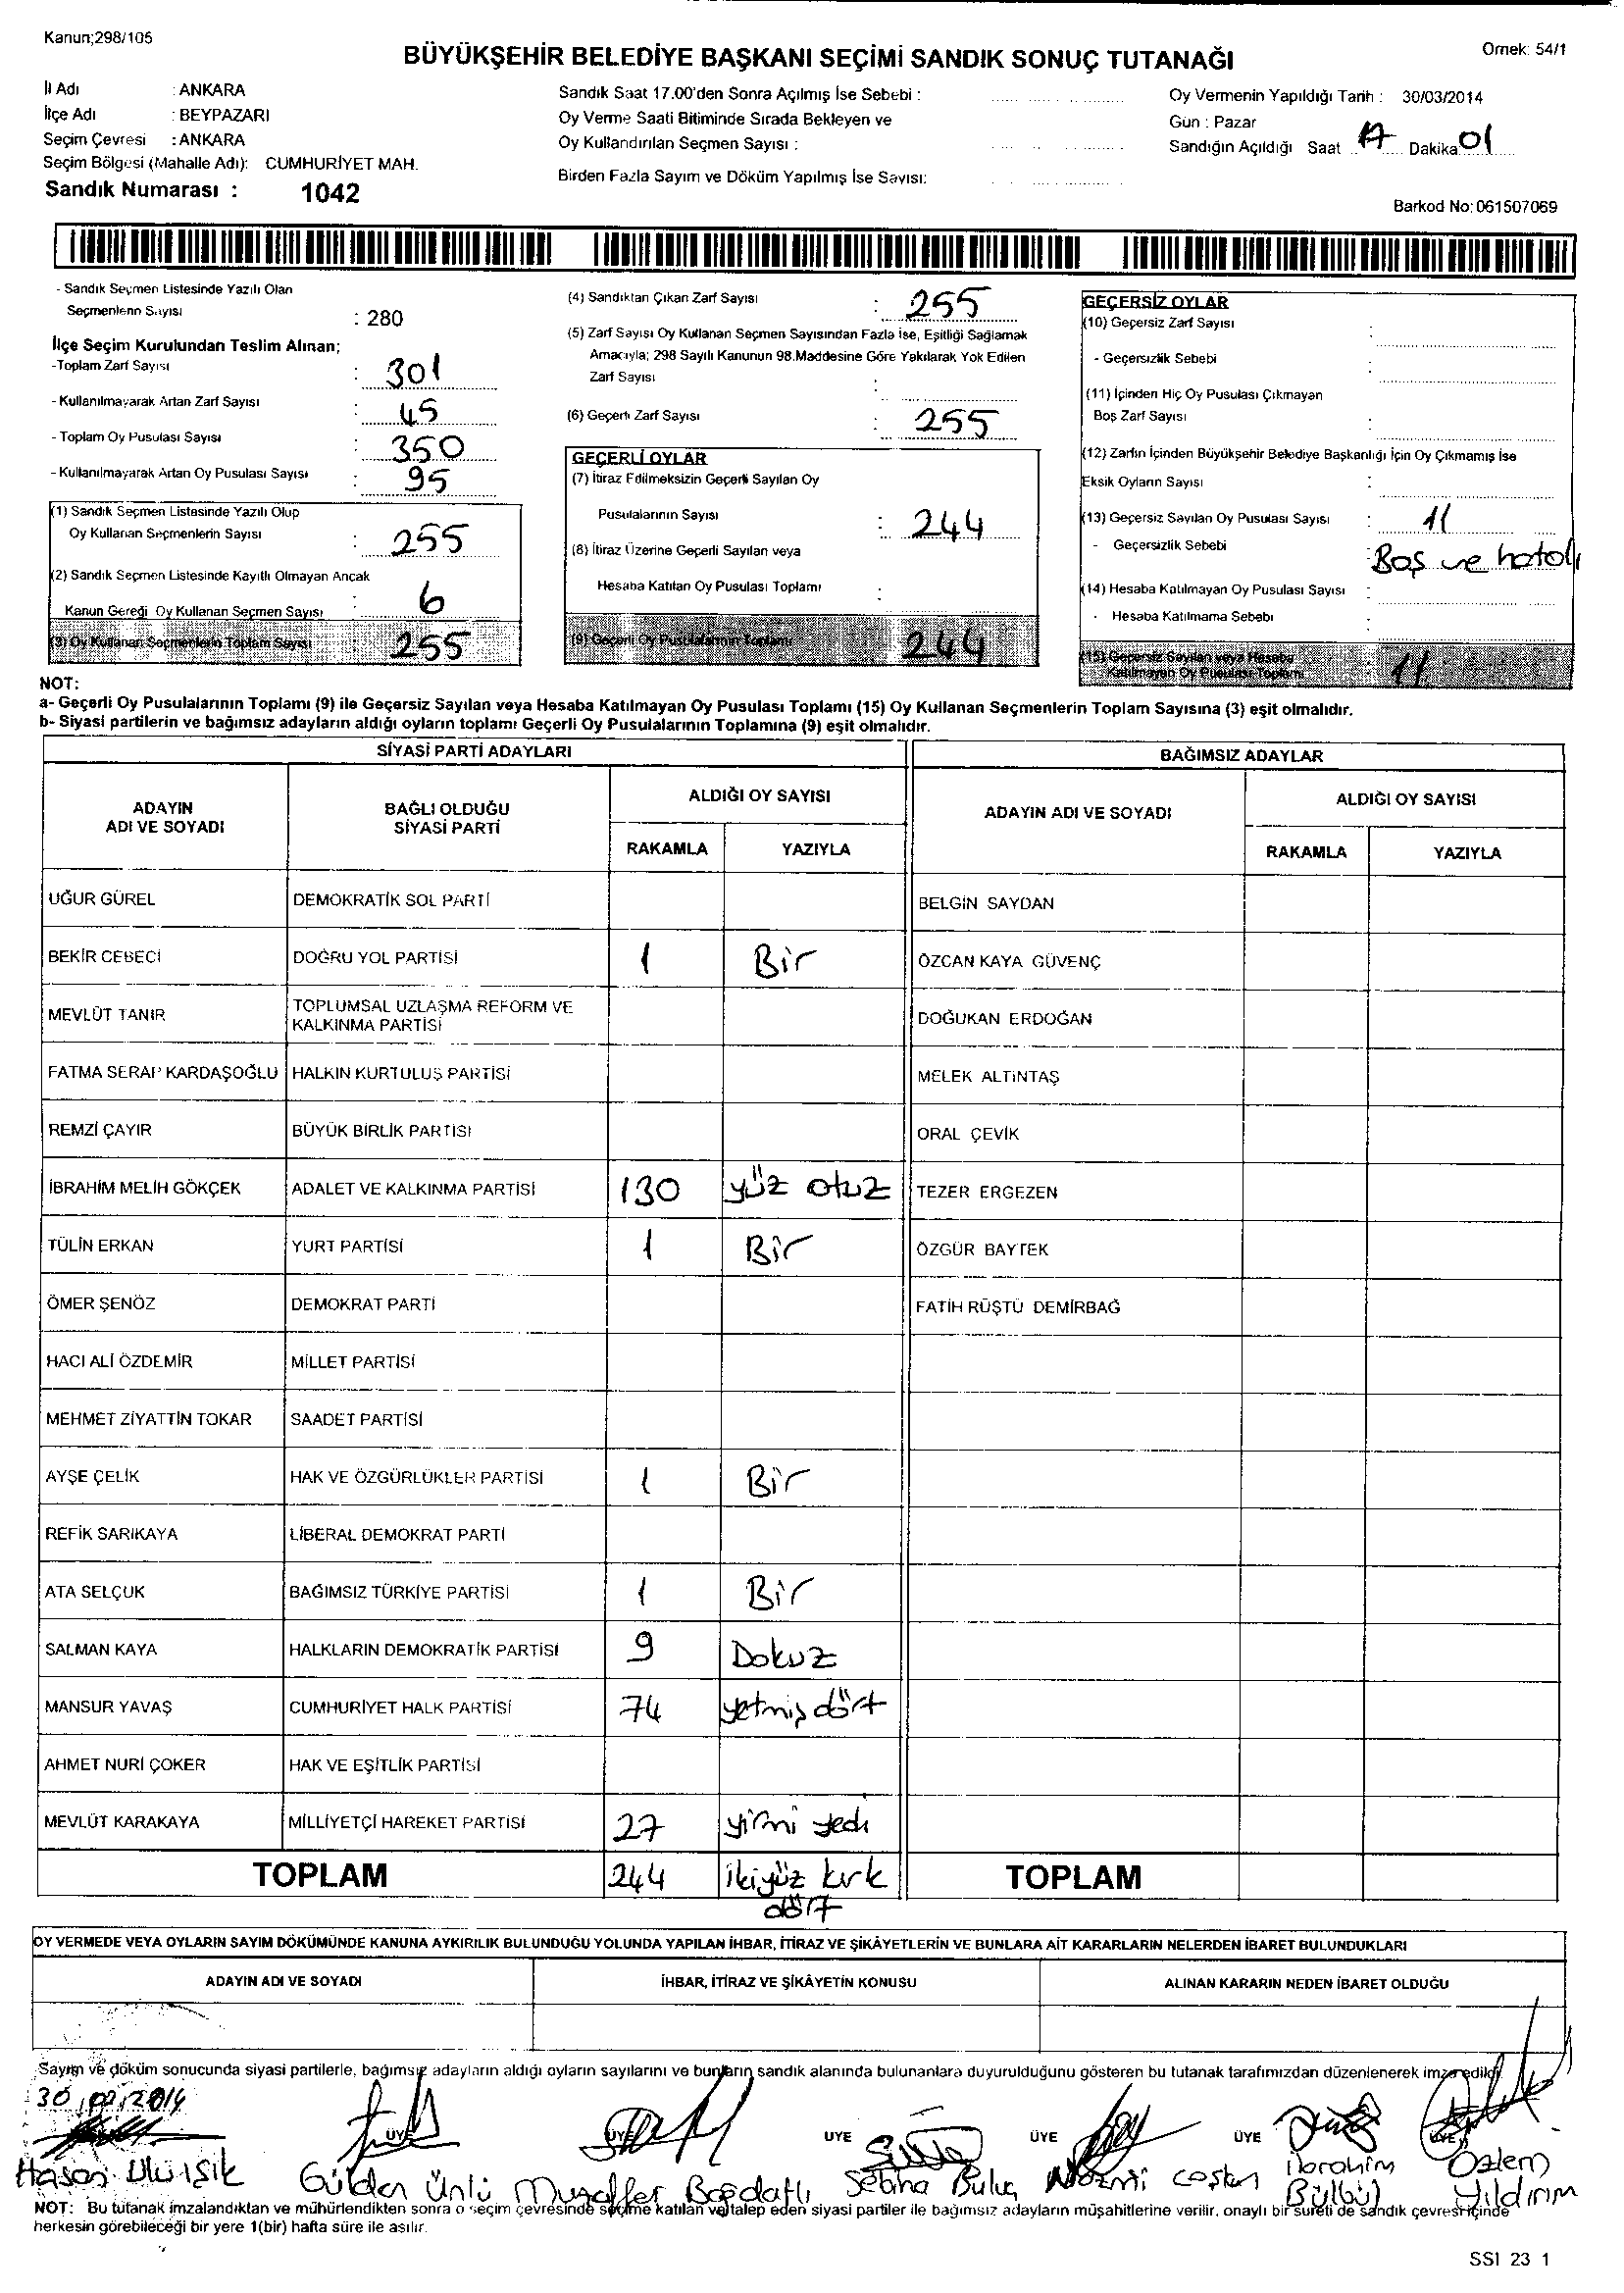 Kanun;298/105
Örnek: 54/1
BÜYÜKŞEHİR BELEDİYE BAŞKANI SEÇİMİ SANDIK SONUÇ TUTANAĞI
İl Adı : ANKARA
İlçe Adı : BEYPAZARI
Seçim Çevresi : ANKARA
Seçim Bölgesi (Mahalle Adı): CUMHURİYET MAH.
Sandık Numarası : 1042
Sandık Saat 17.00'den Sonra Açılmış İse Sebebi :
Oy Verme Saati Bitiminde Sırada Bekleyen ve
Oy Kullandırılan Seçmen Sayısı :
Birden Fazla Sayım ve Döküm Yapılmış İse Sayısı:
Oy Vermenin Yapıldığı Tarih : 30/03/2014
Gün : Pazar
Sandığın Açıldığı Saat 17 Dakika 01
Barkod No: 061507069
- Sandık Seçmen Listesinde Yazılı Olan
Seçmenlerin Sayısı : 280
İlçe Seçim Kurulundan Teslim Alınan;
-Toplam Zarf Sayısı : 301
- Kullanılmayarak Artan Zarf Sayısı : 45
- Toplam Oy Pusulası Sayısı : 350
- Kullanılmayarak Artan Oy Pusulası Sayısı : 95
(1) Sandık Seçmen Listesinde Yazılı Olup
Oy Kullanan Seçmenlerin Sayısı : 255
(2) Sandık Seçmen Listesinde Kayıtlı Olmayan Ancak
Kanun Gereği Oy Kullanan Seçmen Sayısı : 6
(3) Oy Kullanan Seçmenlerin Toplam Sayısı 255
(4) Sandıktan Çıkan Zarf Sayısı : 255
(5) Zarf Sayısı Oy Kullanan Seçmen Sayısından Fazla ise, Eşitliği Sağlamak
Amacıyla; 298 Sayılı Kanunun 98.Maddesine Göre Yakılarak Yok Edilen
Zarf Sayısı :
(6) Geçerli Zarf Sayısı : 255
GEÇERLİ OYLAR
(7) İtiraz Edilmeksizin Geçerli Sayılan Oy
Pusulalarının Sayısı : 244
(8) İtiraz Üzerine Geçerli Sayılan veya
Hesaba Katılan Oy Pusulası Toplamı :
(9) Geçerli Oy Pusulalarının Toplamı 244
GEÇERSİZ OYLAR
(10) Geçersiz Zarf Sayısı :
- Geçersizlik Sebebi :
(11) İçinden Hiç Oy Pusulası Çıkmayan
Boş Zarf Sayısı :
(12) Zarfın İçinden Büyükşehir Belediye Başkanlığı İçin Oy Çıkmamış ise
Eksik Oyların Sayısı :
(13) Geçersiz Sayılan Oy Pusulası Sayısı : 11
- Geçersizlik Sebebi : Boş ve hatalı
(14) Hesaba Katılmayan Oy Pusulası Sayısı :
- Hesaba Katılmama Sebebi :
(15) Geçersiz Sayılan veya Hesaba
Katılmayan Oy Pusulası Toplamı 11
NOT:
a- Geçerli Oy Pusulalarının Toplamı (9) ile Geçersiz Sayılan veya Hesaba Katılmayan Oy Pusulası Toplamı (15) Oy Kullanan Seçmenlerin Toplam Sayısına (3) eşit olmalıdır.
b- Siyasi partilerin ve bağımsız adayların aldığı oyların toplamı Geçerli Oy Pusulalarının Toplamına (9) eşit olmalıdır.
SİYASİ PARTİ ADAYLARI
ADAYIN ADI VE SOYADI BAĞLI OLDUĞU SİYASİ PARTİ ALDIĞI OY SAYISI
RAKAMLA YAZIYLA
UĞUR GÜREL DEMOKRATİK SOL PARTİ
BEKİR CEBECİ DOĞRU YOL PARTİSİ 1 Bir
MEVLÜT TANIR TOPLUMSAL UZLAŞMA REFORM VE KALKINMA PARTİSİ
FATMA SERAP KARDAŞOĞLU HALKIN KURTULUŞ PARTİSİ
REMZİ ÇAYIR BÜYÜK BİRLİK PARTİSİ
İBRAHİM MELİH GÖKÇEK ADALET VE KALKINMA PARTİSİ 130 yüz otuz
TÜLİN ERKAN YURT PARTİSİ 1 Bir
ÖMER ŞENÖZ DEMOKRAT PARTİ
HACI ALİ ÖZDEMİR MİLLET PARTİSİ
MEHMET ZİYATTİN TOKAR SAADET PARTİSİ
AYŞE ÇELİK HAK VE ÖZGÜRLÜKLER PARTİSİ 1 Bir
REFİK SARIKAYA LİBERAL DEMOKRAT PARTİ
ATA SELÇUK BAĞIMSIZ TÜRKİYE PARTİSİ 1 Bir
SALMAN KAYA HALKLARIN DEMOKRATİK PARTİSİ 9 Dokuz
MANSUR YAVAŞ CUMHURİYET HALK PARTİSİ 74 yetmiş dört
AHMET NURİ ÇOKER HAK VE EŞİTLİK PARTİSİ
MEVLÜT KARAKAYA MİLLİYETÇİ HAREKET PARTİSİ 27 yirmi yedi
TOPLAM 244 ikiyüz kırk
dört
BAĞIMSIZ ADAYLAR
ADAYIN ADI VE SOYADI ALDIĞI OY SAYISI
RAKAMLA YAZIYLA
BELGİN SAYDAN
ÖZCAN KAYA GÜVENÇ
DOĞUKAN ERDOĞAN
MELEK ALTINTAŞ
ORAL ÇEVİK
TEZER ERGEZEN
ÖZGÜR BAYTEK
FATİH RÜŞTÜ DEMİRBAĞ
TOPLAM
OY VERMEDE VEYA OYLARIN SAYIM DÖKÜMÜNDE KANUNA AYKIRILIK BULUNDUĞU YOLUNDA YAPILAN İHBAR, İTİRAZ VE ŞİKÂYETLERİN VE BUNLARA AİT KARARLARIN NELERDEN İBARET BULUNDUKLARI
ADAYIN ADI VE SOYADI İHBAR, İTİRAZ VE ŞİKÂYETİN KONUSU ALINAN KARARIN NEDEN İBARET OLDUĞU
Sayım ve döküm sonucunda siyasi partilerle, bağımsız adayların aldığı oyların sayılarını ve bunların sandık alanında bulunanlara duyurulduğunu gösteren bu tutanak tarafımızdan düzenlenerek imza edildi.
ÜYE ÜYE ÜYE ÜYE ÜYE ÜYE
Hasan Uluışık Gülden Ünlü Muzaffer Bağdatlı Sebiha Buluç Nazmi coşkun İbrahim Bülbül Özlem Yıldırım
NOT: Bu tutanak imzalandıktan ve mühürlendikten sonra o seçim çevresinde seçime katılan ve talep eden siyasi partiler ile bağımsız adayların müşahitlerine verilir, onaylı bir sureti de sandık çevresi içinde
herkesin görebileceği bir yere 1(bir) hafta süre ile asılır.
SSI 23 1